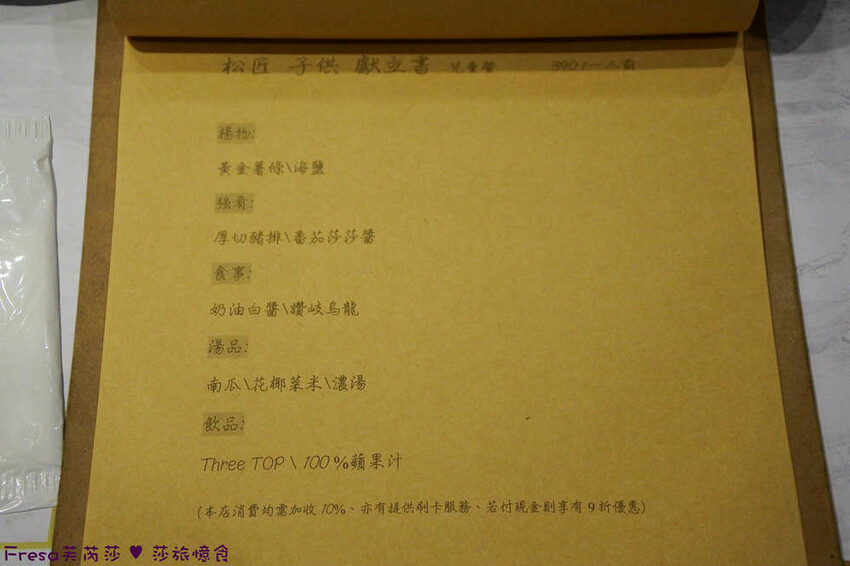 松匠 子供 獻立書 兒童餐 390/一人前
揚物:
黃金薯條\海鹽
強肴:
厚切豬排\番茄莎莎醬
食事:
奶油白醬\讚岐烏龍
湯品:
南瓜\花椰菜米\濃湯
飲品:
Three TOP \ 100%蘋果汁
(本店消費均需加收10%、亦有提供刷卡服務、若付現金則享有9折優惠)
Fresa芙芮莎 ♥ 莎旅憶食